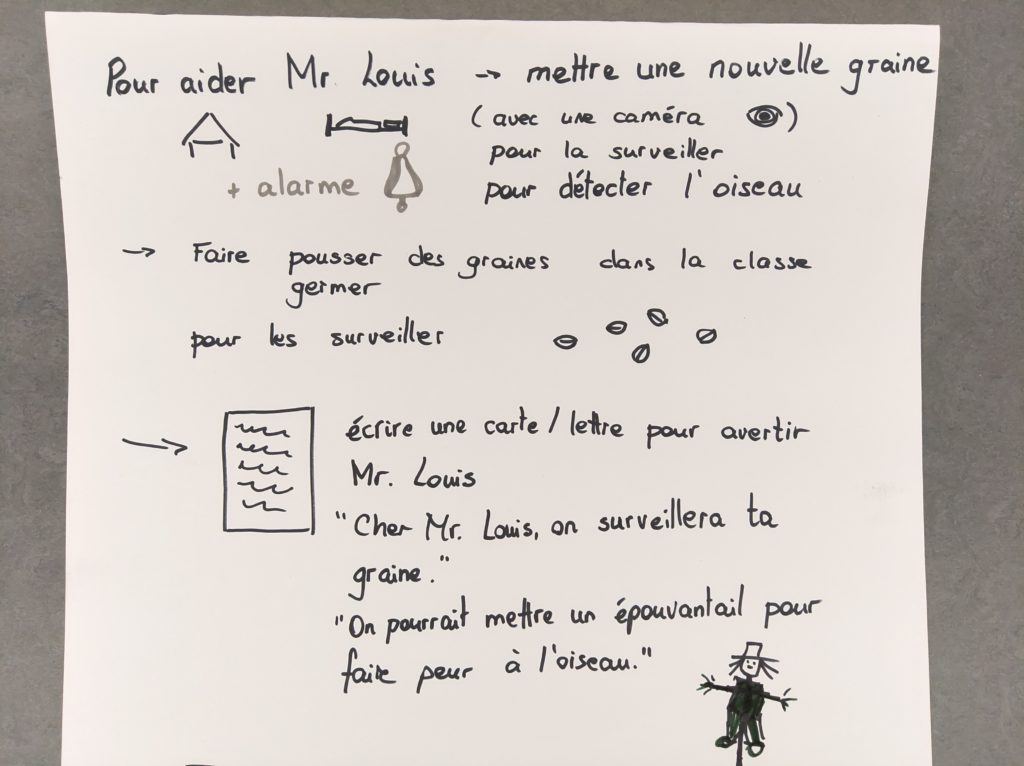 Pour aider Mr. Louis → mettre une nouvelle graine
(avec une caméra )
pour la surveiller
+ alarme pour détecter l'oiseau
→ Faire pousser des graines dans la classe
germer
pour les surveiller
→ écrire une carte / lettre pour avertir
Mr. Louis
"Cher Mr. Louis, on surveillera ta
graine."
"On pourrait mettre un épouvantail pour
faire peur à l'oiseau."